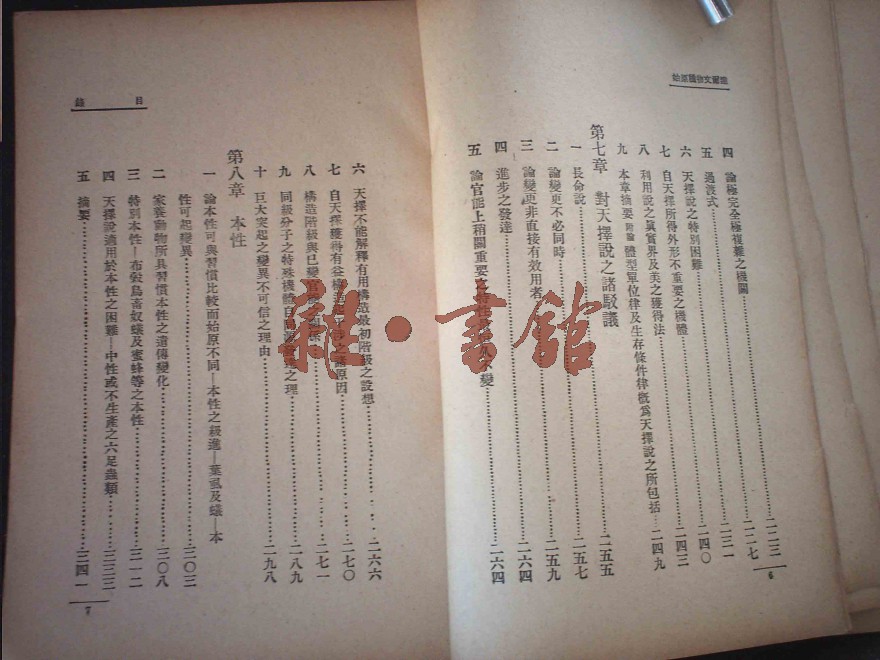 達爾文物種原始
四 論極完全極複雜之機關……二二三
五 過渡式……二二七
六 天擇說之特別困難……二三一
七 自天擇所得外形不重要之機體……二四〇
八 利用說之眞實界及美之獲得法……二四三
九 本章摘要 附論 體型單位律及生存條件律概爲天擇說之所包括……二四九
第七章 對天擇說之諸駁議……二五五
一 長命說……二五七
二 論變更不必同時……二五九
三 論變更非直接有效用者……二六四
四 進步之發達……二六四
五 論官能上稍關重要之特性 不變
6
目錄
六 天擇不能解釋有用構造最初階級之設想……二六六
七 自天擇獲得有益構造 之諸原因……二七〇
八 構造階級與已變官能之關係……二七一
九 同級分子之特殊機體自同源 之理……二八九
十 巨大突起之變異不可信之理由……二九八
第八章 本性
一 論本性可與習慣比較而始原不同—本性之級進—葉虱及蟻—本
性可起變異……三〇三
二 家養動物所具習慣本性之遺傳變化……三〇八
三 特別本性—布穀鳥畜奴蟻及蜜蜂等之本性……三一二
四 天擇說適用於本性之困難—中性或不生產之六足蟲類……三三三
五 摘要……三四一
7
雜·書館